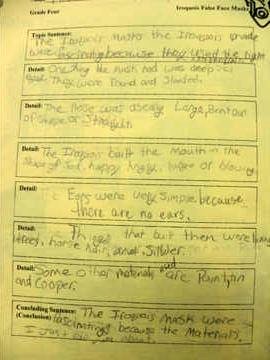 Grade Four Iroquois False Face Masks
Topic Sentence:
The Iroquois masks the Iroquois made
were fascinating because they used the
Detail: One thing the mask had was deep
They were round and Slanted.
Detail:
The Nose was usealy Large, Bent out
of shape or Straight.
Detail: The Iroquois built the Mouth in the
shape of sad, happy, angry, or blowing
Detail: Ears were very Simple because
there are no ears.
Detail: that but them were
trees, horse hair, and Silver.
Detail: Some other materials are
and Cooper.
Concluding Sentence: The Iroquois mask were
(Conclusion) fascinating because the Materials.
I Just